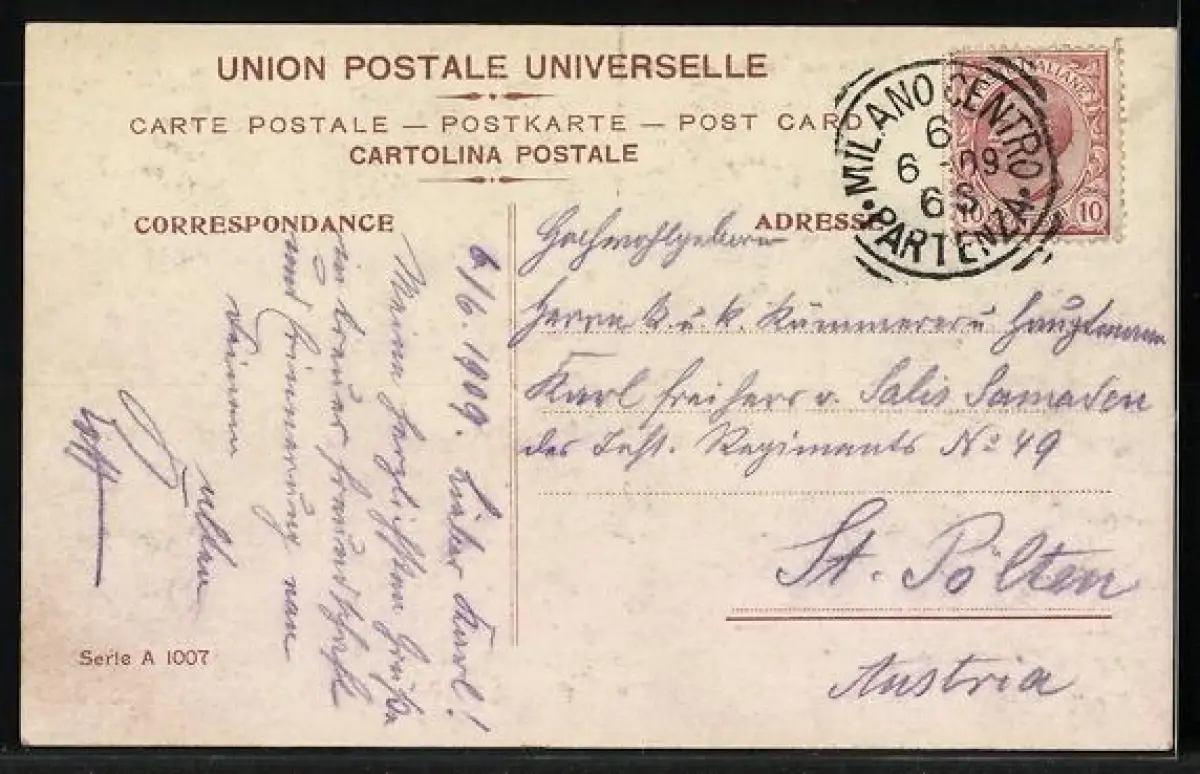 UNION POSTALE UNIVERSELLE
CARTE POSTALE — POSTKARTE — POST CARD
CARTOLINA POSTALE
MILANO CENTRO
6
6 09
6 S
• PARTENZA •
10 10
CORRESPONDANCE
ADRESSE
6/6. 1909. Lieber Karl!
Meinen herzlichsten Grüße
in treuer Freundschaft
und Erinnerung von
Deinem
alten
Hochwohlgeboren
Herrn k. u. k. Kämmerer u Hauptmann
Karl Freiherr v. Salis Samaden
des Inft. Regiments No 49
St. Pölten
Austria
Serie A 1007